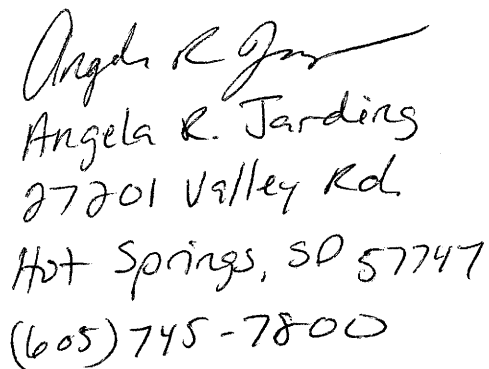 Angela R J
Angela R. Jarding
27201 Valley Rd.
Hot Springs, SD 57747
(605) 745-7800